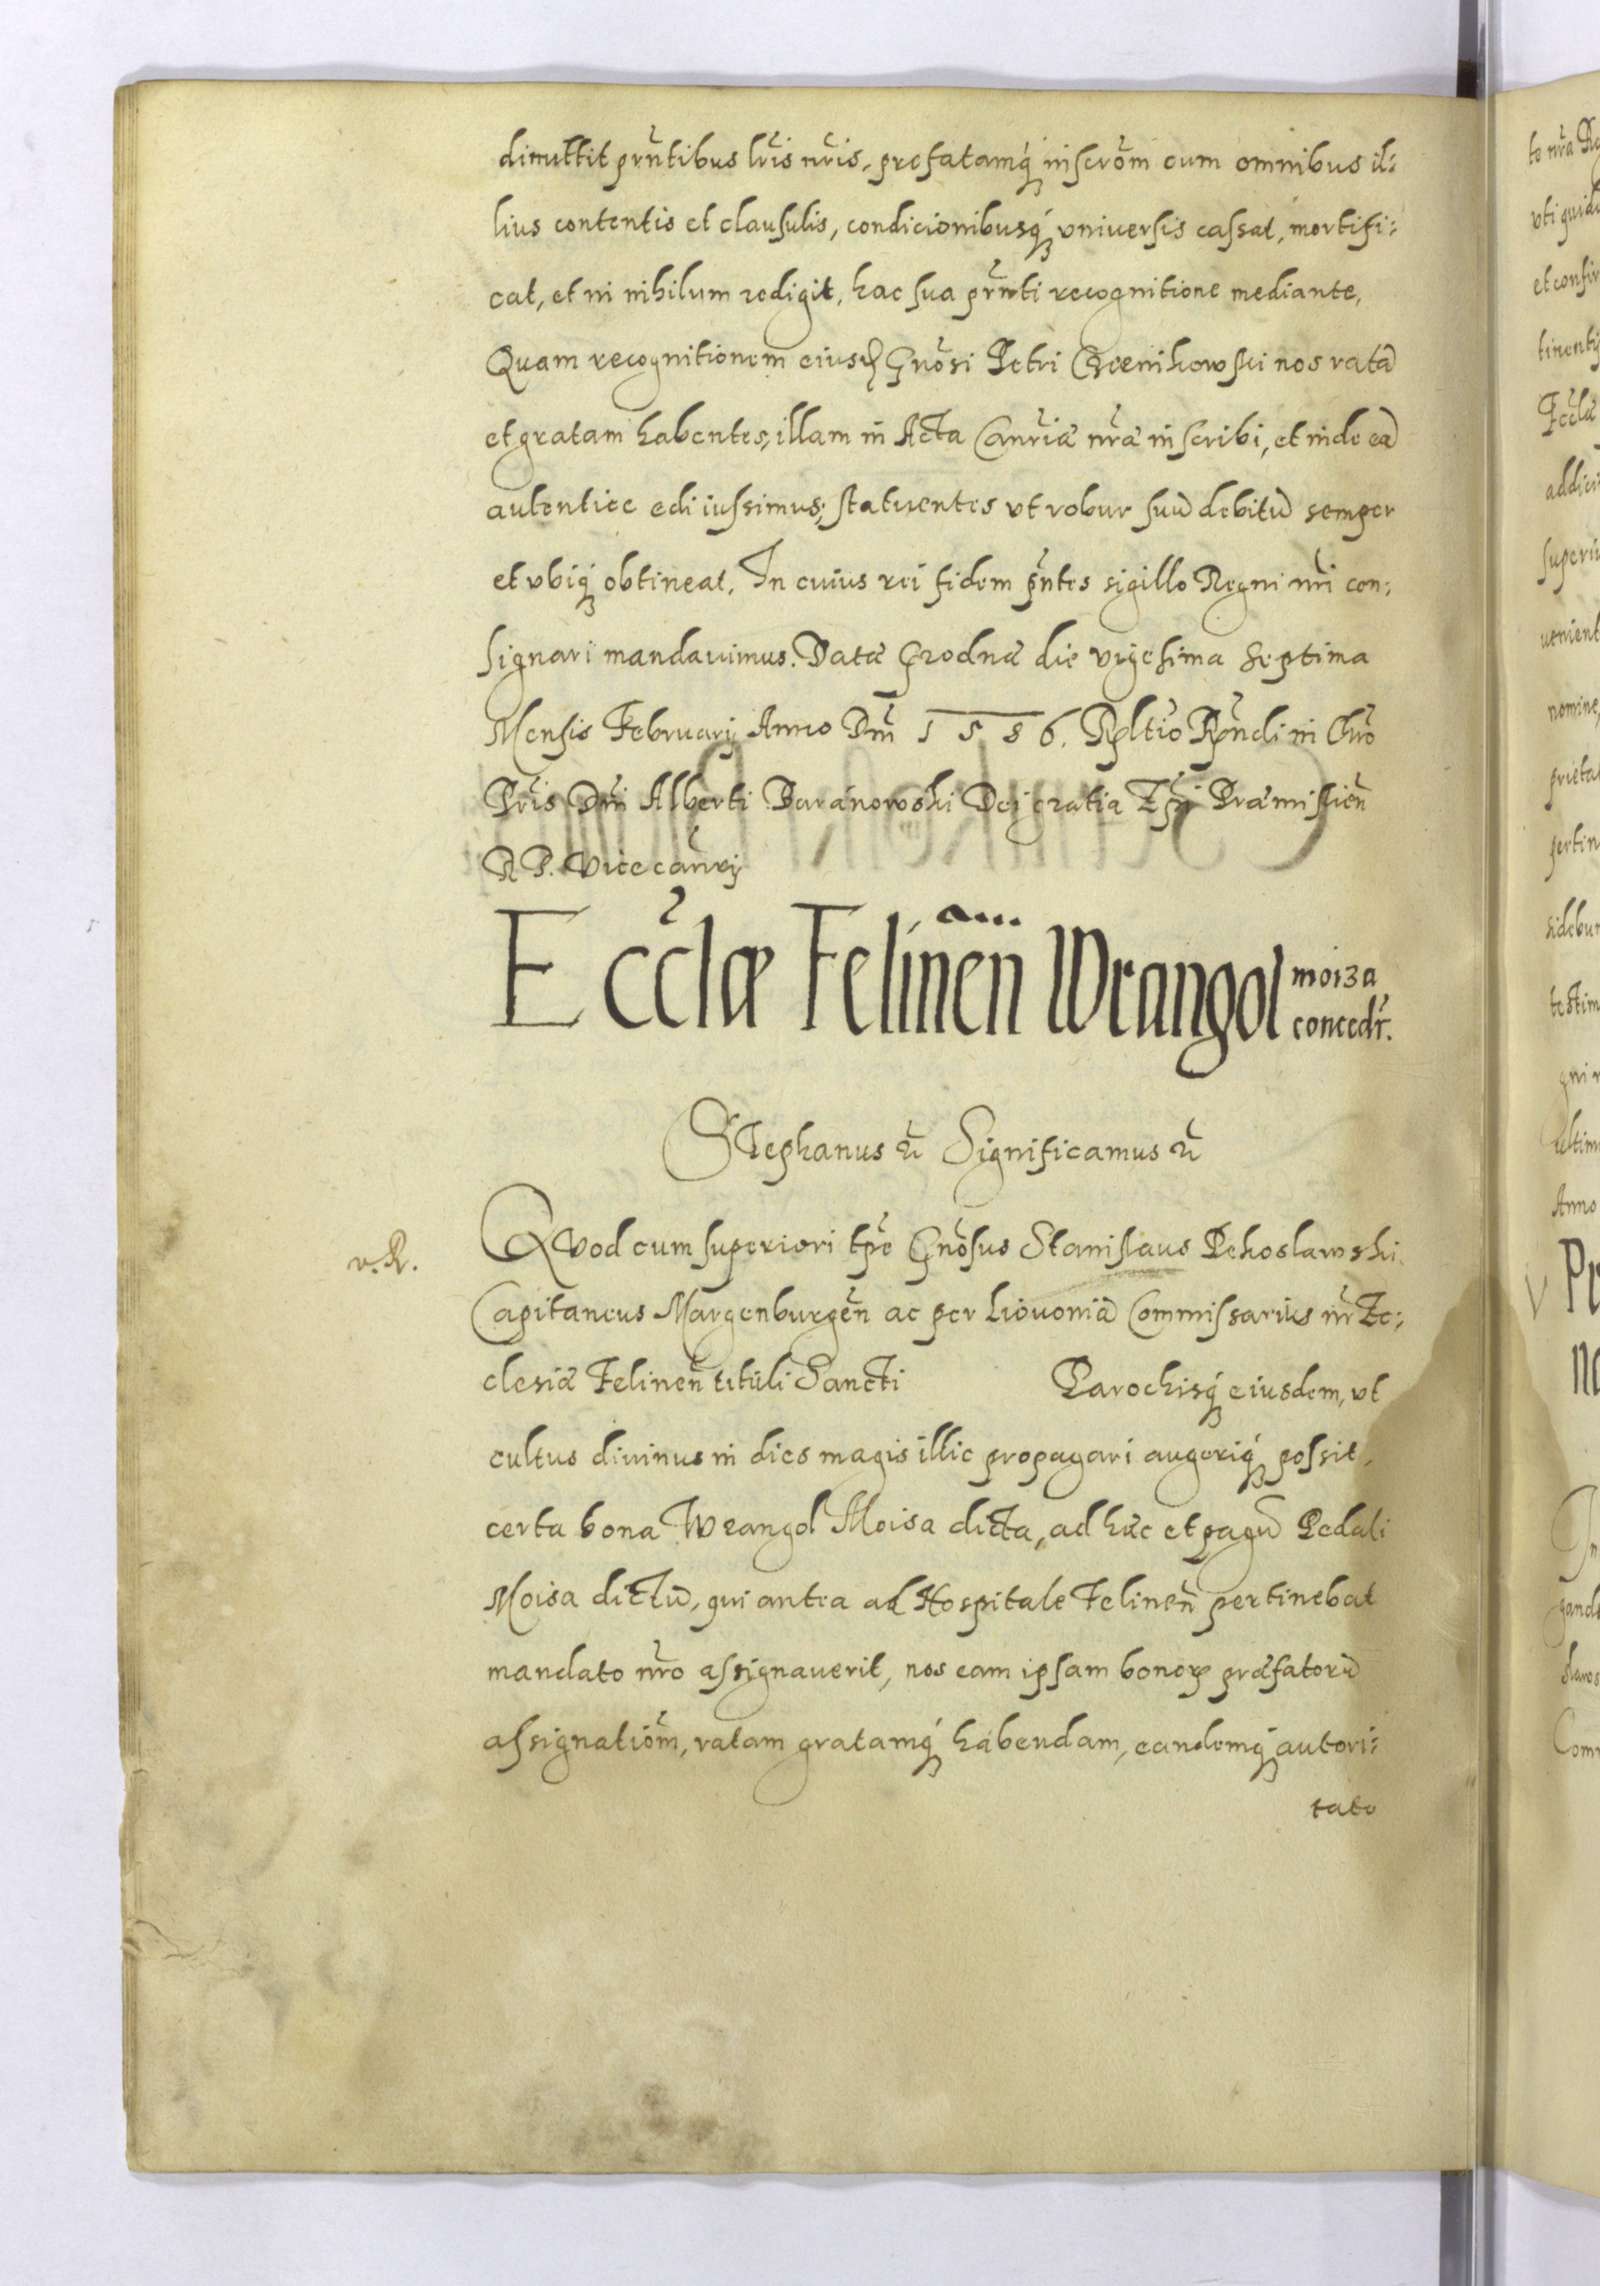 dimittit prñtibus lr̃is nr̃is, prefatamq́ꝫ inscrõm cum omnibus il:
lius contentis et clausulis, condicionibusq́ꝫ vniuersis cassat, mortifi:
cat, et in nihilum redigit, hac sua prñti recognitione mediante,
Quam recognitionem eiusd Gnõsi Petri nos ratã
et gratam habentes, illam in Acta Canr̃iæ nr̃æ inscribi, et inde eã
autentice edi iussimus; statuentes vt robur suũ debitũ semper
et vbiqꝫ obtineat. In cuius rei fidem pñtes sigillo Regni nr̃i con:
signari mandauimus. Datæ Grodnæ die vigesima septima
Mensis Februarij Anno Dm̃ 1586. Rltio Rñdi in Chro
Pris Dñi Alberti Baranowski Dei gratia Epĩ Præmislien̄
R P. Vicecanrij
Eccl̃æ Felinen̄ Wrangol moiza
concedr̃.
Stephanus ẽ Significamus ẽ
v. R.
QVod cum superiori tp̃e Gnõsus Stanislaus Pekoslawski
Capitaneus Margenburgen̄ ac per Liouoniã Commissarius nr̃ Ec:
clesiæ Felinen̄ tituli Sancti Parochisq́ꝫ eiusdem, vt
cultus diuinus in dies magis illic propagari augeriqꝫ possit,
certa bona Wrangol Moisa dicta, ad hæc et pagũ Pedali
Moisa dictũ, qui antea ad Hospitale Felinen̄ pertinebat
mandato nr̃o assignauerit, nos eam ipsam bonorꝝ præfatorũ
assignatiõm, ratam gratamqꝫ habendam, eandemqꝫ autori:
tate